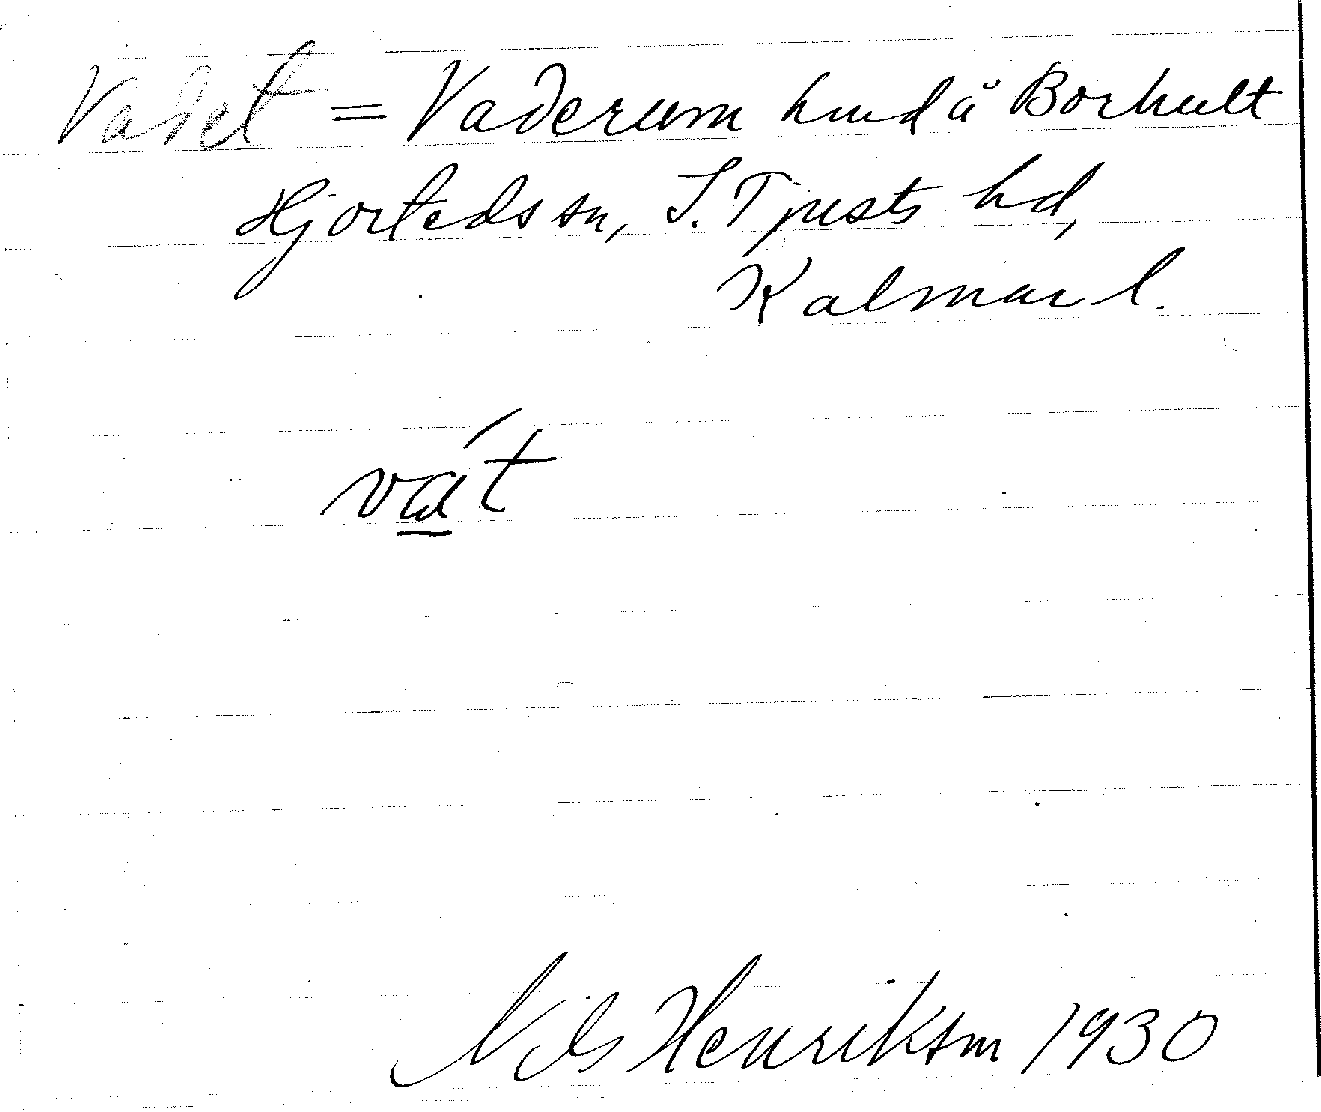 Vadet = Vaderum   å Borhult
Hjorteds sn, S. Tjusts hd,
Kalmar l.
vát
Nils Henrikson 1930